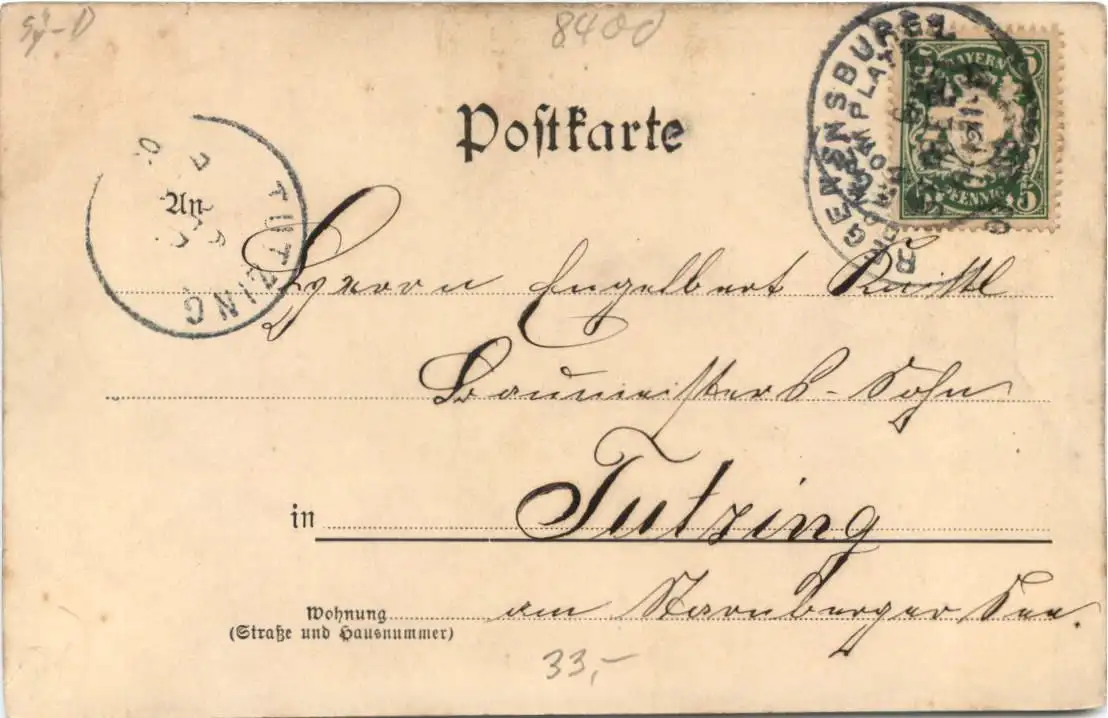 8400
Postkarte
REGENSBURG 2.
DOMPLATZ
BAYERN
5 5
PFENNIG
TUTZING
An
Herrn Engelbert
Baumeisters-Sohn
in Tutzing
Wohnung am Starnberger See.
(Straße und Hausnummer)
33,-